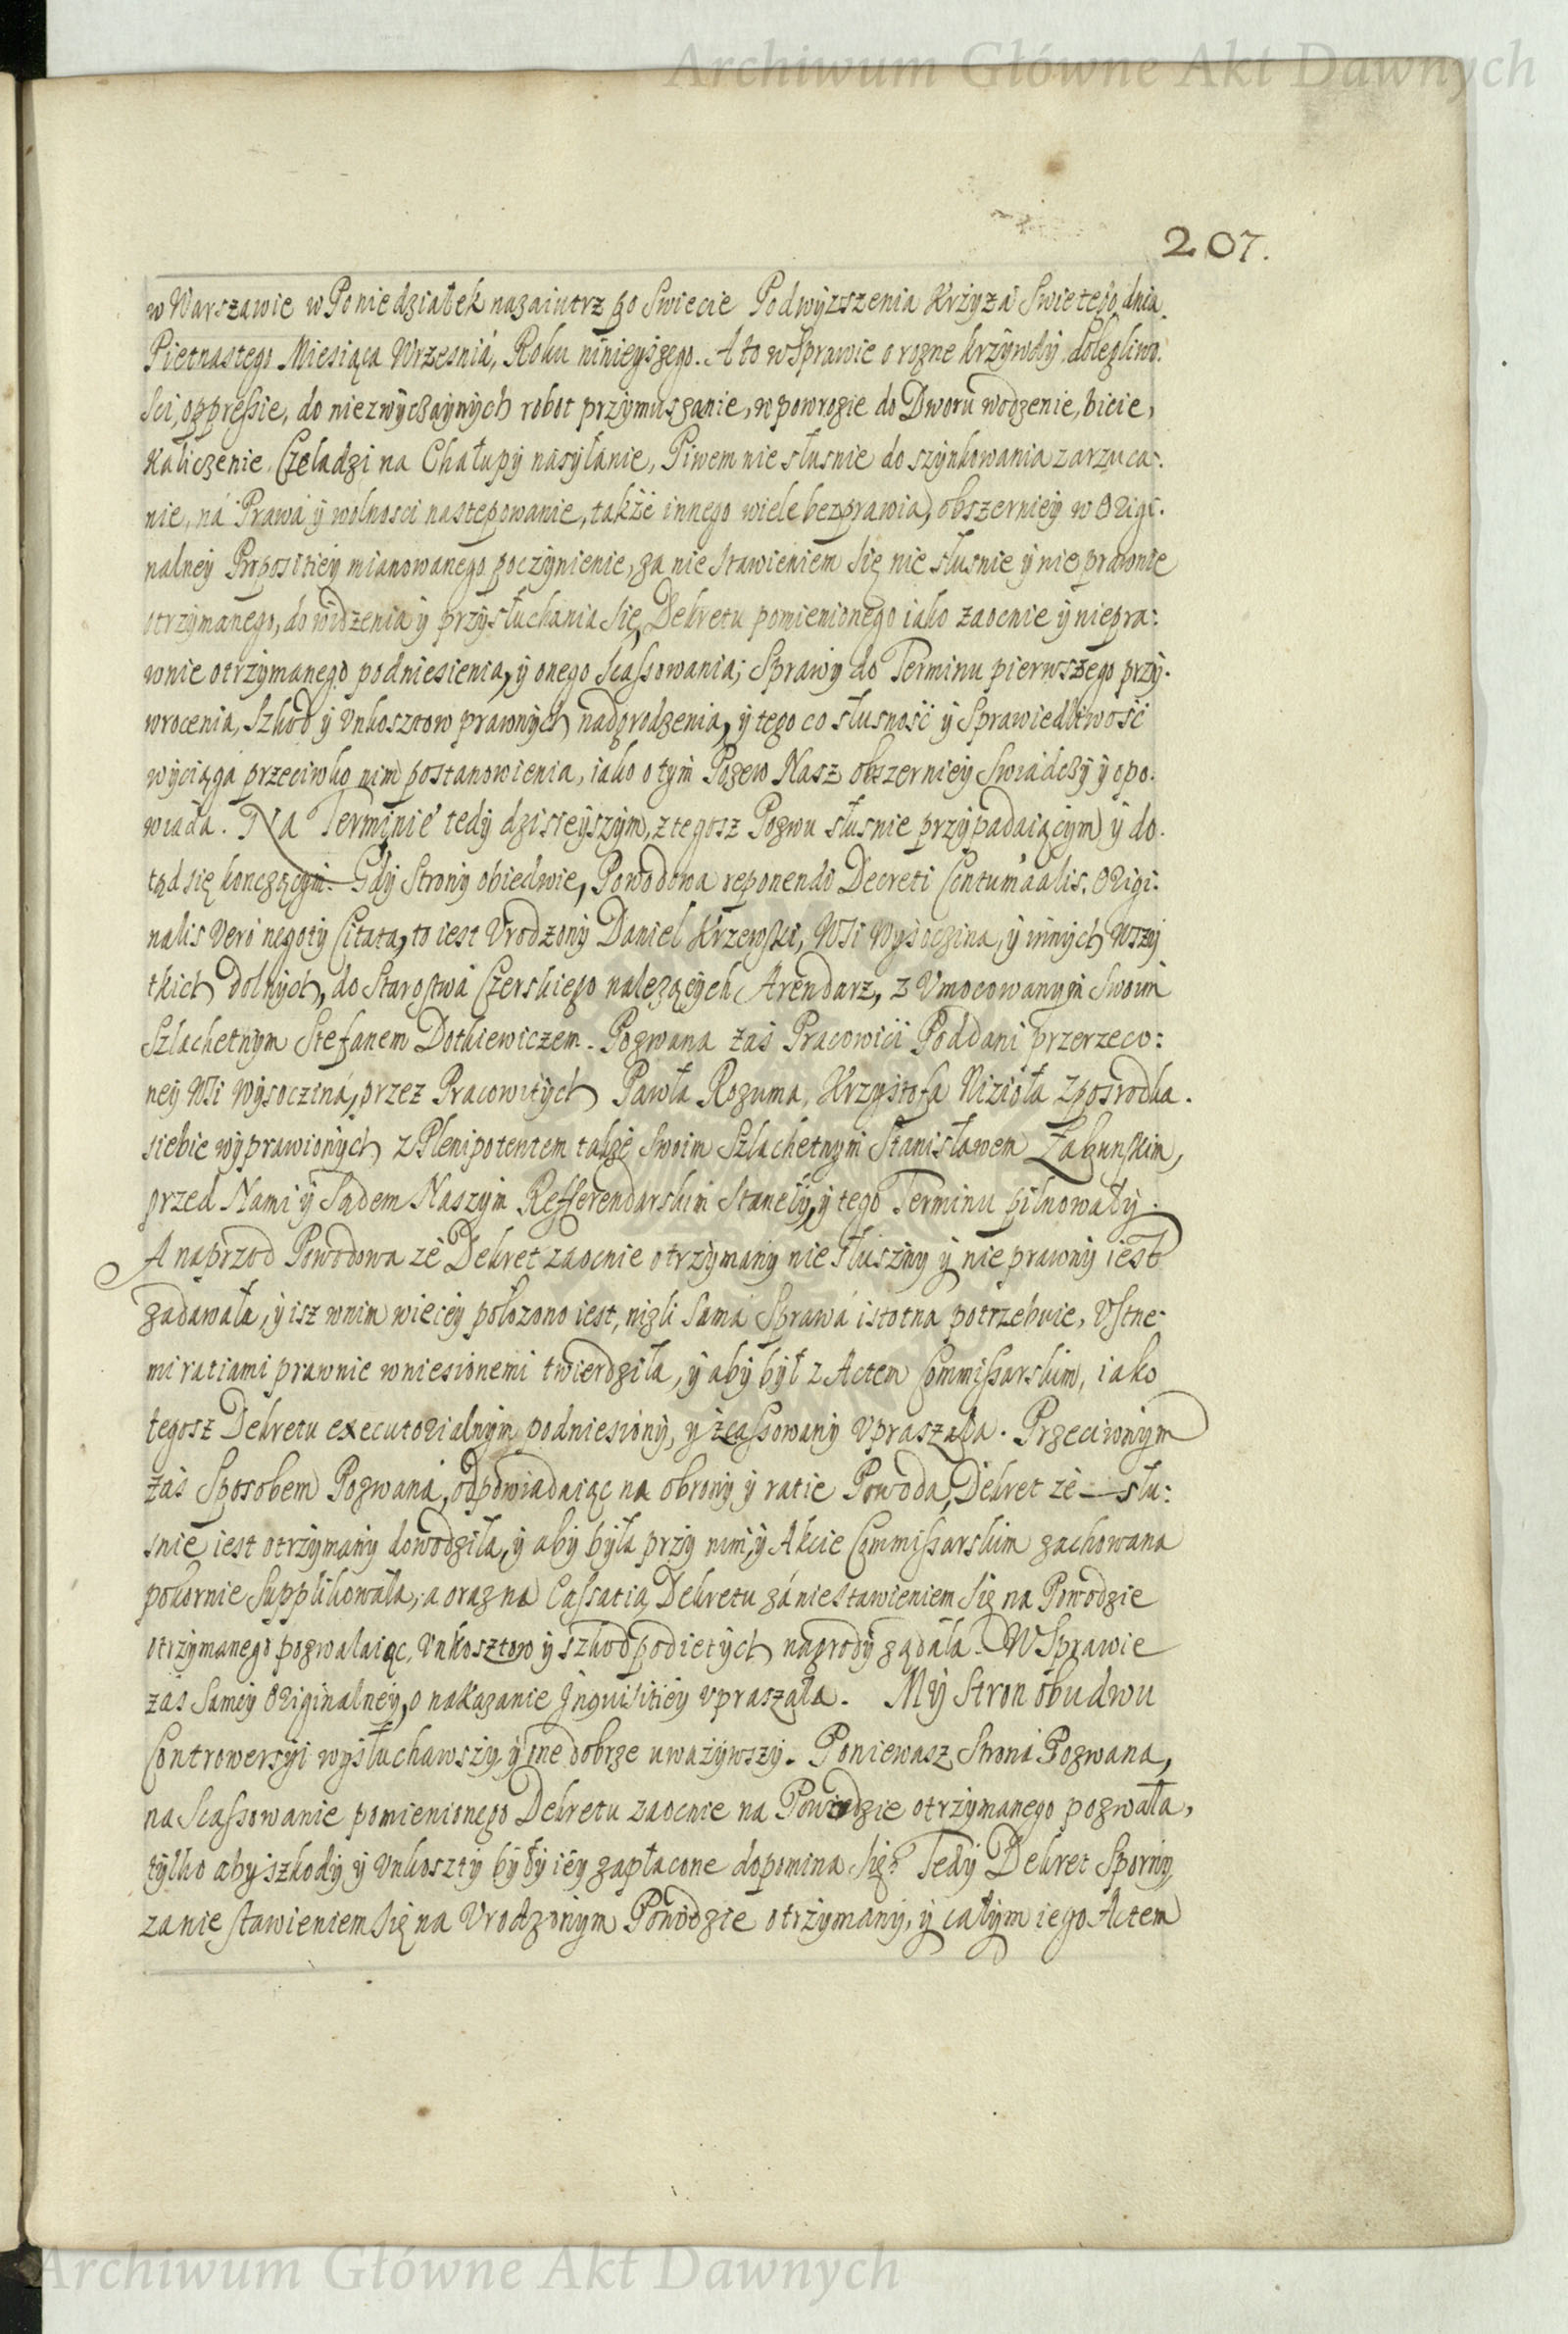 Archiwum Główne Akt Dawnych
207.
w Warszawie w Poniedziałek nazaiutrz po Swiecie Podwyższenia Krzyża Swietego dnia
Pietnastego Miesiąca Wrzesniá, Roku ninieyszego. A to w Sprawie o rozne krzywdy, dolegliwo.
sci, oppressie, do niezwyczaynych robot przymuszanie, w powrozie do Dworu wodzenie, bicie,
kaliczenie, Czeladzi na Chałupy nasyłanie, Piwem nie słusnie do szynkowania zarzuca:
nie, ná Prawá y wolnosci nastepowanie, także innego wiele bezprawia, obszerniey w Origi:
nalney Propositiey mianowanego poczynienie, za nie stawieniem się nie słusnie y nie prawnie
otrzymanego, do widzenia y przysłuchania się, Dekretu pomienionego iako zaocnie y niepra:
wnie otrzymanego podniesienia, y onego scassowania; Sprawy do Terminu pierwszego przy.
wrocenia, Szkod y Vnkosztow prawnych nadgrodzenia, y tego co słusność y Sprawiedliwość
wyciąga przeciwko nim postanowienia, iako o tym Pozew Nasz obszerniey swiadczy y opo.
wiada. Na Terminie tedy dzisieyszym, z tegosz Pozwu słusnie przypadaiącym y do.
tąd się konczącym. Gdy Strony obiedwie, Powodowa reponendi Decreti Contumatialis, Origi:
nalis vero negoty Citata, to iest Vrodzony Daniel Krzewski, Wsi Wysoczina, y innych wszy
tkich Dolnych, do Starostwá Czerskiego należących Arendarz, z Vmocowanym swoim
Szlachetnym Stefanem Dotkiewiczem. Pozwana zaś Pracowići Poddani przerzeco:
ney Wsi Wysocziná, przez Pracowitych Pawła Rozuma, Krzysztofa Nizioła z posrodka.
siebie wyprawionych z Plenipotentem także swoim Szlachetnym Stanisławem Zabunskim,
przed Nami y Sądem Naszym Refferendarskim Staneły, y tego Terminu pilnowały.
A naprzod Powodowa że Dekret zaocnie otrzymany nie słuszny y nie prawny iest
zadawała, y isz w nim wiecey położono iest, nizli samá Sprawá istotna potrzebuie, Vstne:
mi ratiami prawnie wniesionemi twierdziła, y aby był z Actem Commissarskim, iako
tegosz Dekretu executorialnym podniesiony, y zcassowany vpraszała. Przeciwnym
zas Sposobem Pozwaná, odpowiadaiąc na obrony y ratie Powoda, Dekret że słu:
snie iest otrzymany dowodziła, y aby była przy nim, y Akcie Commissarskim zachowana
pokornie supplikowała, a oraz na Cassatią Dekretu zá niestawieniem się na Powodzie
otrzymanego pozwalaiąc, Vnkosztow y szkod podietych nagrody ządała. W Sprawie
zas samey Originalney, o nakazanie Inquisitiey vpraszała. My Stron obudwu
Controwersyi wysłuchawszy y one dobrze uważywszy. Poniewasz Strona Pozwana,
na scassowanie pomienionego Dekretu zaocnie na Powodzie otrzymanego pozwała,
tylko aby szkody y Vnkoszty były iey zapłacone dopomina się. Tedy Dekret Sporny
za nie stawieniem się na Vrodzonym Powodzie otrzymany, y całym iego Actem
Archiwum Główne Akt Dawnych